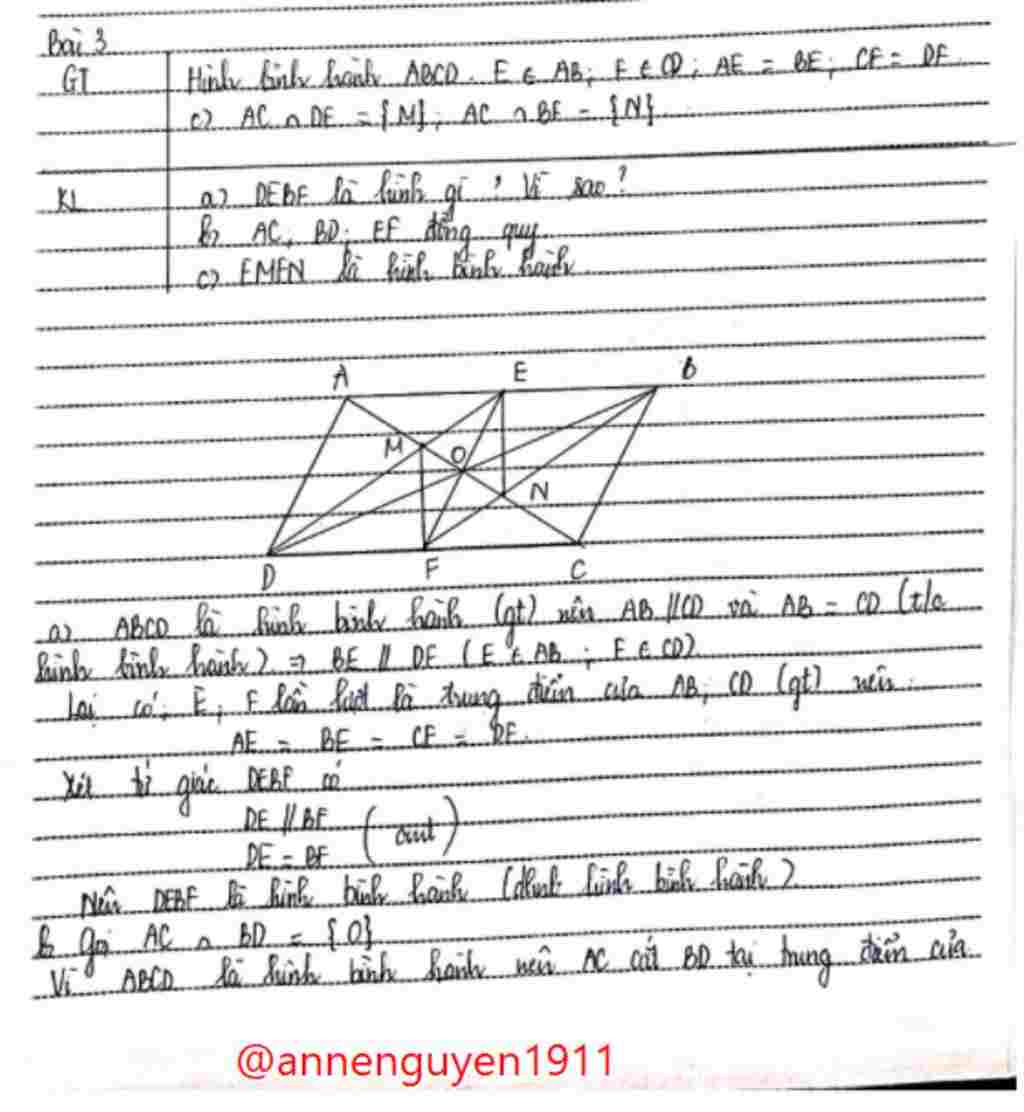 Bài 3
GT Hình bình hành ABCD. E ∈ AB; F ∈ CD; AE = BE; CF = DF.
c) AC ∩ DE = {M}; AC ∩ BF = {N}
KL a) DEBF là hình gì, Vì sao?
b) AC, BD, EF đồng quy
c) EMFN là hình bình hành
A E B
M O
N
D F C
a) ABCD là hình bình hành (gt) nên AB // CD và AB = CD (t/c
hình bình hành) ⇒ BE // DF (E ∈ AB; F ∈ CD)
Lại có, E, F lần lượt là trung điểm của AB, CD (gt) nên:
AE = BE = CF = DF.
Xét tứ giác DEBF có
DE // BF
DE = BF (cmt)
Nên DEBF là hình bình hành (dhnb hình bình hành)
b, Gọi AC ∩ BD = {O}
Vì ABCD là hình bình hành nên AC cắt BD tại trung điểm của
@annenguyen1911